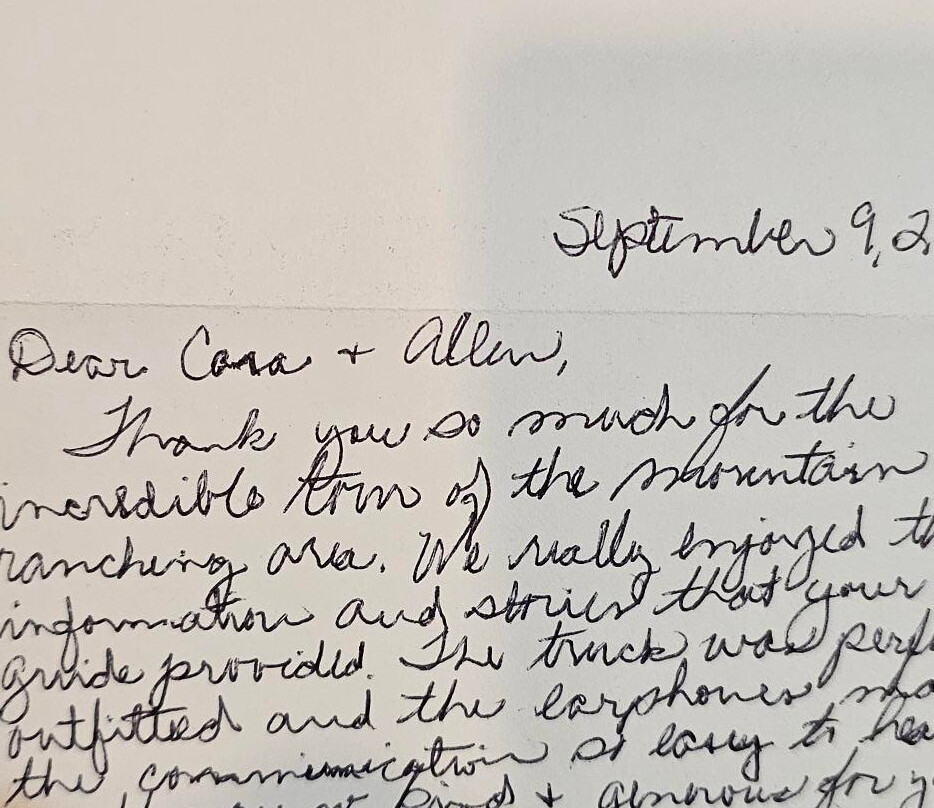 September 9, 2
Dear Cara + Allen,
Thank you so much for the
incredible tour of the mountain
ranching area. We really enjoyed th
information and stories that your
guide provided. The truck was perf
outfitted and the earphones ma
the communication so easy to hea
kind + generous for y